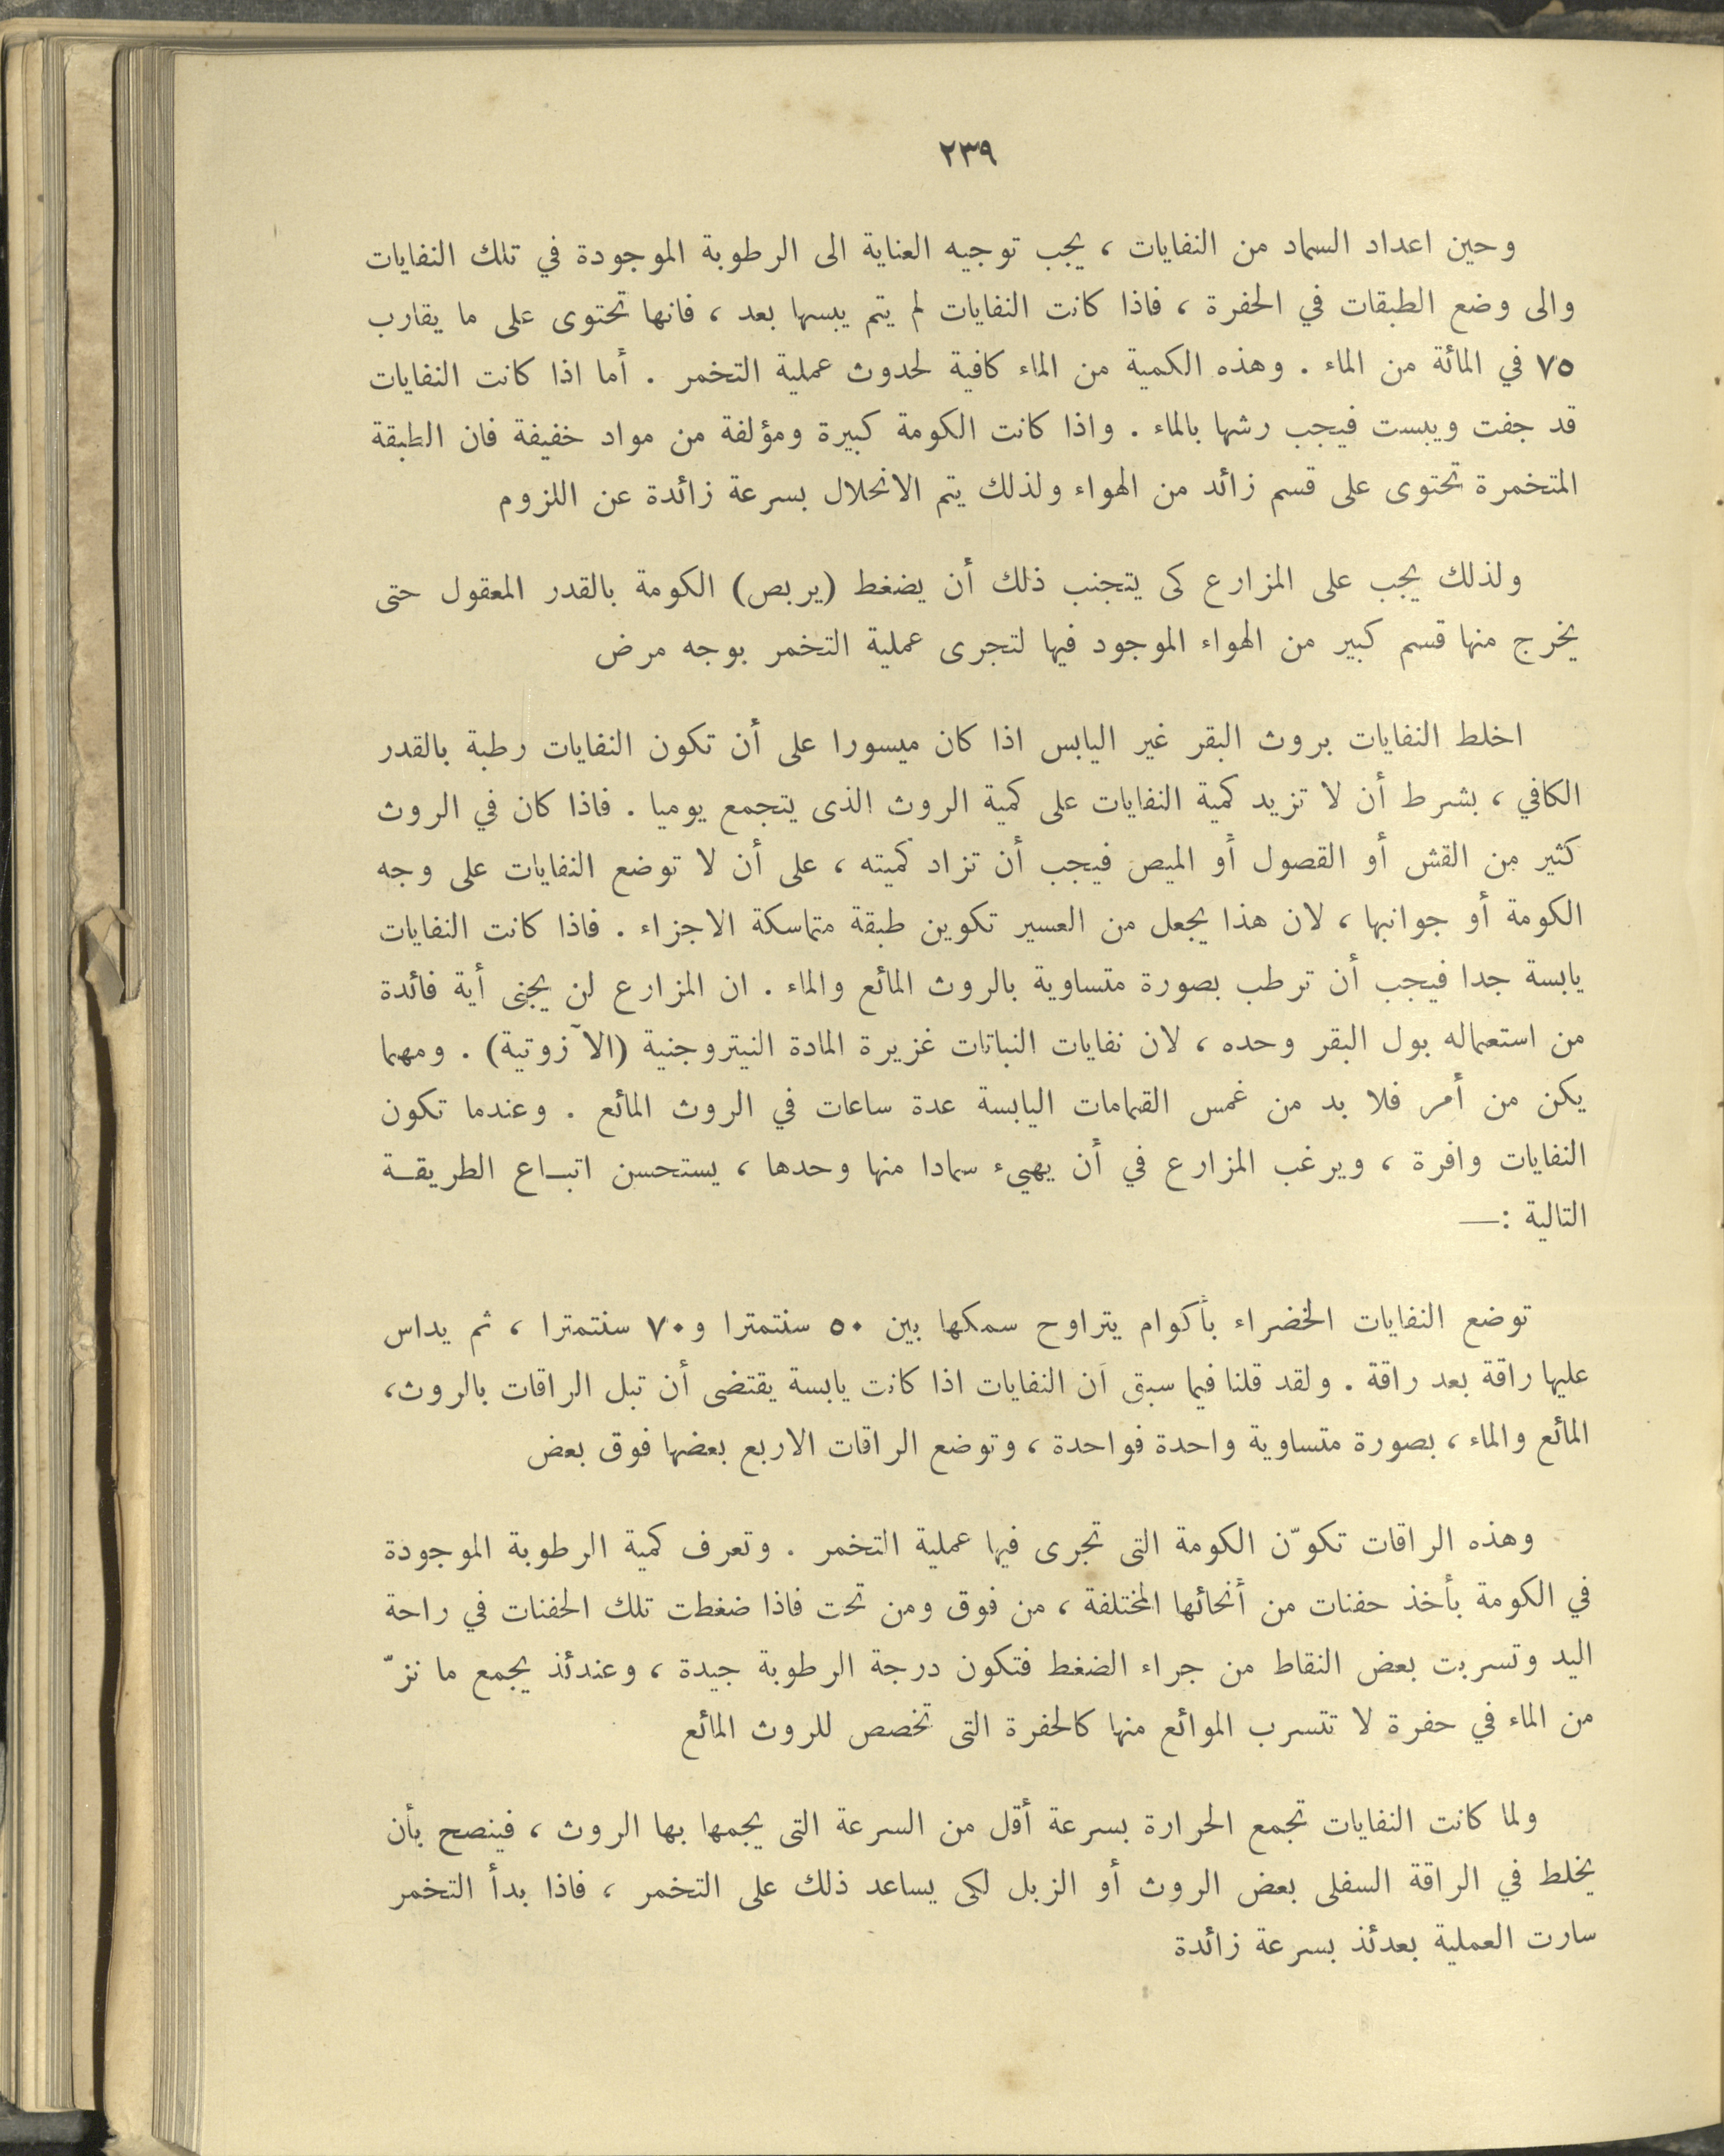 ٢٣٩
وحين اعداد السماد من النفايات ، يجب توجيه العناية الى الرطوبة الموجودة في تلك النفايات
والى وضع الطبقات في الحفرة ، فاذا كانت النفايات لم يتم يبسها بعد ، فانها تحتوى على ما يقارب
٧٥ في المائة من الماء . وهذه الكمية من الماء كافية لحدوث عملية التخمر . أما اذا كانت النفايات
قد جفت ويبست فيجب رشها بالماء . واذا كانت الكومة كبيرة ومؤلفة من مواد خفيفة فان الطبقة
المتخمرة تحتوى على قسم زائد من الهواء ولذلك يتم الانحلال بسرعة زائدة عن اللزوم
ولذلك يجب على المزارع كى يتجنب ذلك أن يضغط (يربص) الكومة بالقدر المعقول حتى
يخرج منها قسم كبير من الهواء الموجود فيها لتجرى عملية التخمر بوجه مرض
اخلط النفايات بروث البقر غير اليابس اذا كان ميسورا على أن تكون النفايات رطبة بالقدر
الكافي ، بشرط أن لا تزيد كمية النفايات على كمية الروث الذى يتجمع يوميا . فاذا كان في الروث
كثير من القش أو القصول أو الميص فيجب أن تزاد كميته ، على أن لا توضع النفايات على وجه
الكومة أو جوانبها ، لان هذا يجعل من العسير تكوين طبقة متماسكة الاجزاء . فاذا كانت النفايات
يابسة جدا فيجب أن ترطب بصورة متساوية بالروث المائع والماء . ان المزارع لن يجنى أية فائدة
من استعماله بول البقر وحده ، لان نفايات النباتات غزيرة المادة النيتروجنية (الآزوتية) . ومهما
يكن من أمر فلا بد من غمس القمامات اليابسة عدة ساعات في الروث المائع . وعندما تكون
النفايات وافرة ، ويرغب المزارع في أن يهيء سمادا منها وحدها ، يستحسن اتبـاع الطريقـة
التالية :—
توضع النفايات الخضراء بأكوام يتراوح سمكها بين ٥٠ سنتمترا و٧٠ سنتمترا ، ثم يداس
عليها راقة بعد راقة . ولقد قلنا فيما سبق أن النفايات اذا كانت يابسة يقتضى أن تبل الراقات بالروث،
المائع والماء ، بصورة متساوية واحدة فواحدة ، وتوضع الراقات الاربع بعضها فوق بعض
وهذه الراقات تكوّن الكومة التى تجرى فيها عملية التخمر . وتعرف كمية الرطوبة الموجودة
في الكومة بأخذ حفنات من أنحائها المختلفة ، من فوق ومن تحت فاذا ضغطت تلك الحفنات في راحة
اليد وتسربت بعض النقاط من جراء الضغط فتكون درجة الرطوبة جيدة ، وعندئذ يجمع ما نزّ
من الماء في حفرة لا تتسرب الموائع منها كالحفرة التى تخصص للروث المائع
ولما كانت النفايات تجمع الحرارة بسرعة أقل من السرعة التى يجمها بها الروث ، فينصح بأن
يخلط في الراقة السفلى بعض الروث أو الزبل لكى يساعد ذلك على التخمر ، فاذا بدأ التخمر
سارت العملية بعدئذ بسرعة زائدة